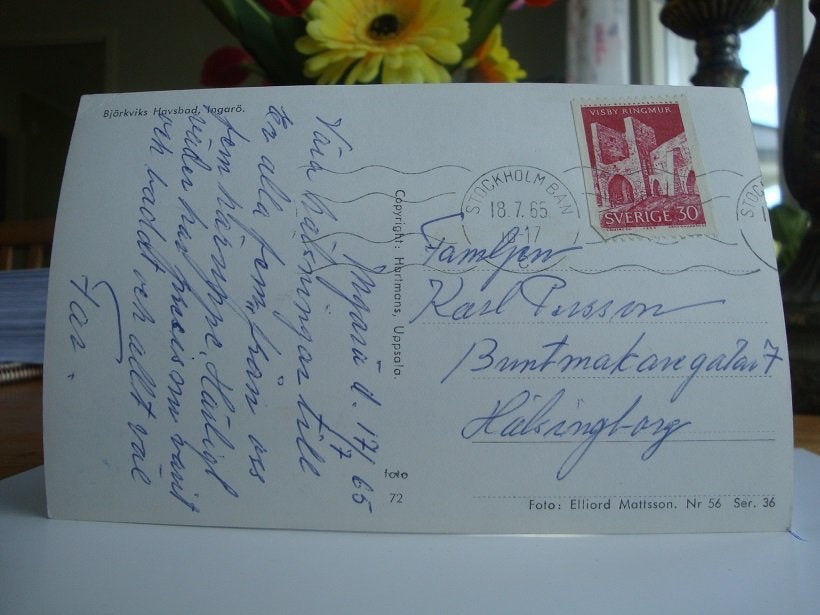 Björkviks Havsbad, Ingarö.
Ingarö d. 17/7 65
Våra hälsningar till
Er alla fem, från oss
fem häruppe. Härligt
väder har precis om varit
och badat och allt väl
Far.
Copyright: Hartmans, Uppsala.
foto
72
VISBY RINGMUR
SVERIGE 30
STOCKHOLM BAN
18.7.65
18-17
STOC
Familjen
Karl Persson
Buntmakaregatan 7
Hälsingborg
Foto: Elliord Mattsson. Nr 56 Ser. 36